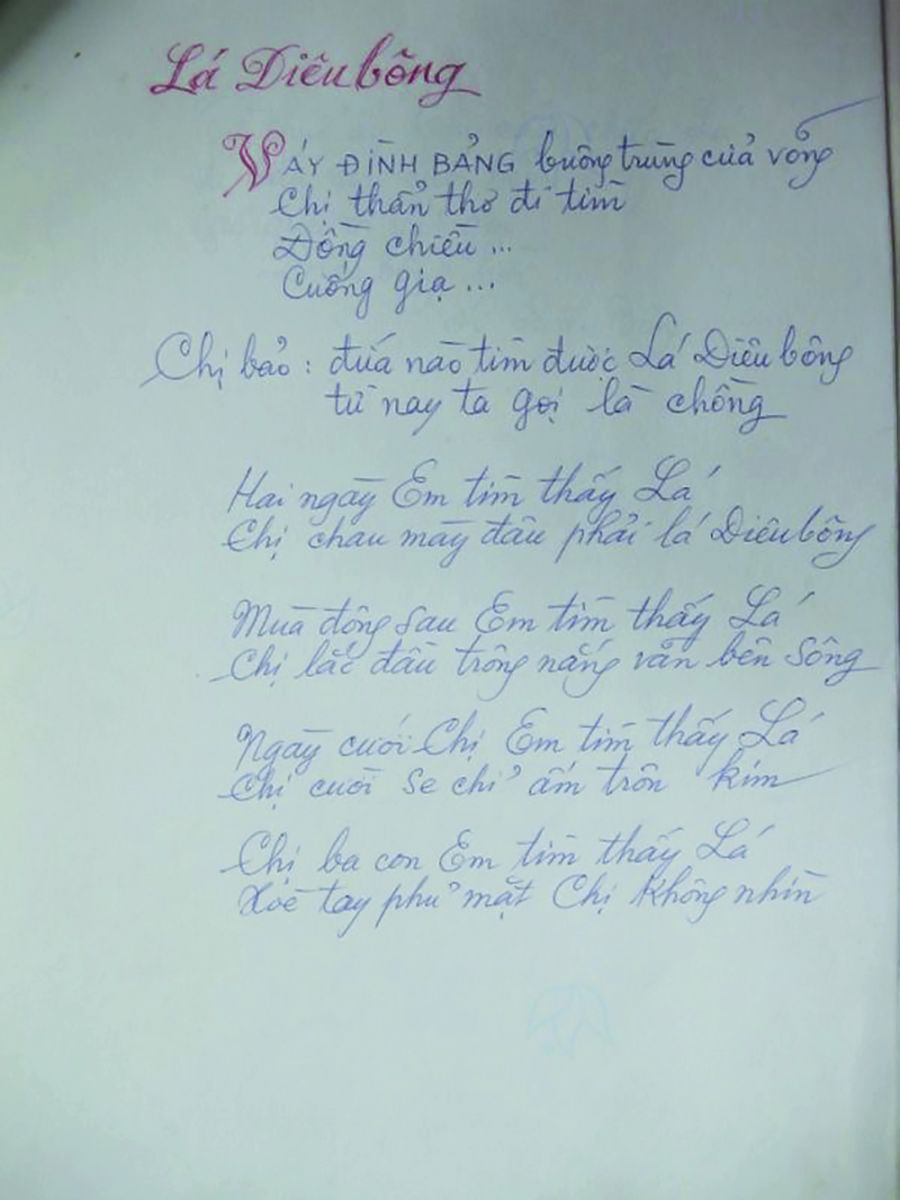 Lá Diêubông
VÁY ĐÌNH BẢNG buông trùng cửa võng
Chị thẩn thơ đi tìm
Đồng chiều ...
Cuống giạ ...
Chị bảo : đứa nào tìm được Lá Diêu bông
từ nay ta gọi là chồng
Hai ngày Em tìm thấy Lá
Chị chau mày đâu phải lá Diêubông
Mùa đông sau Em tìm thấy Lá
Chị lắc đầu trông nắng vãn bên sông
Ngày cưới Chị Em tìm thấy Lá
Chị cười se chỉ ấm trôn kim
Chị ba con Em tìm thấy Lá
Xòe tay phủ mặt Chị không nhìn